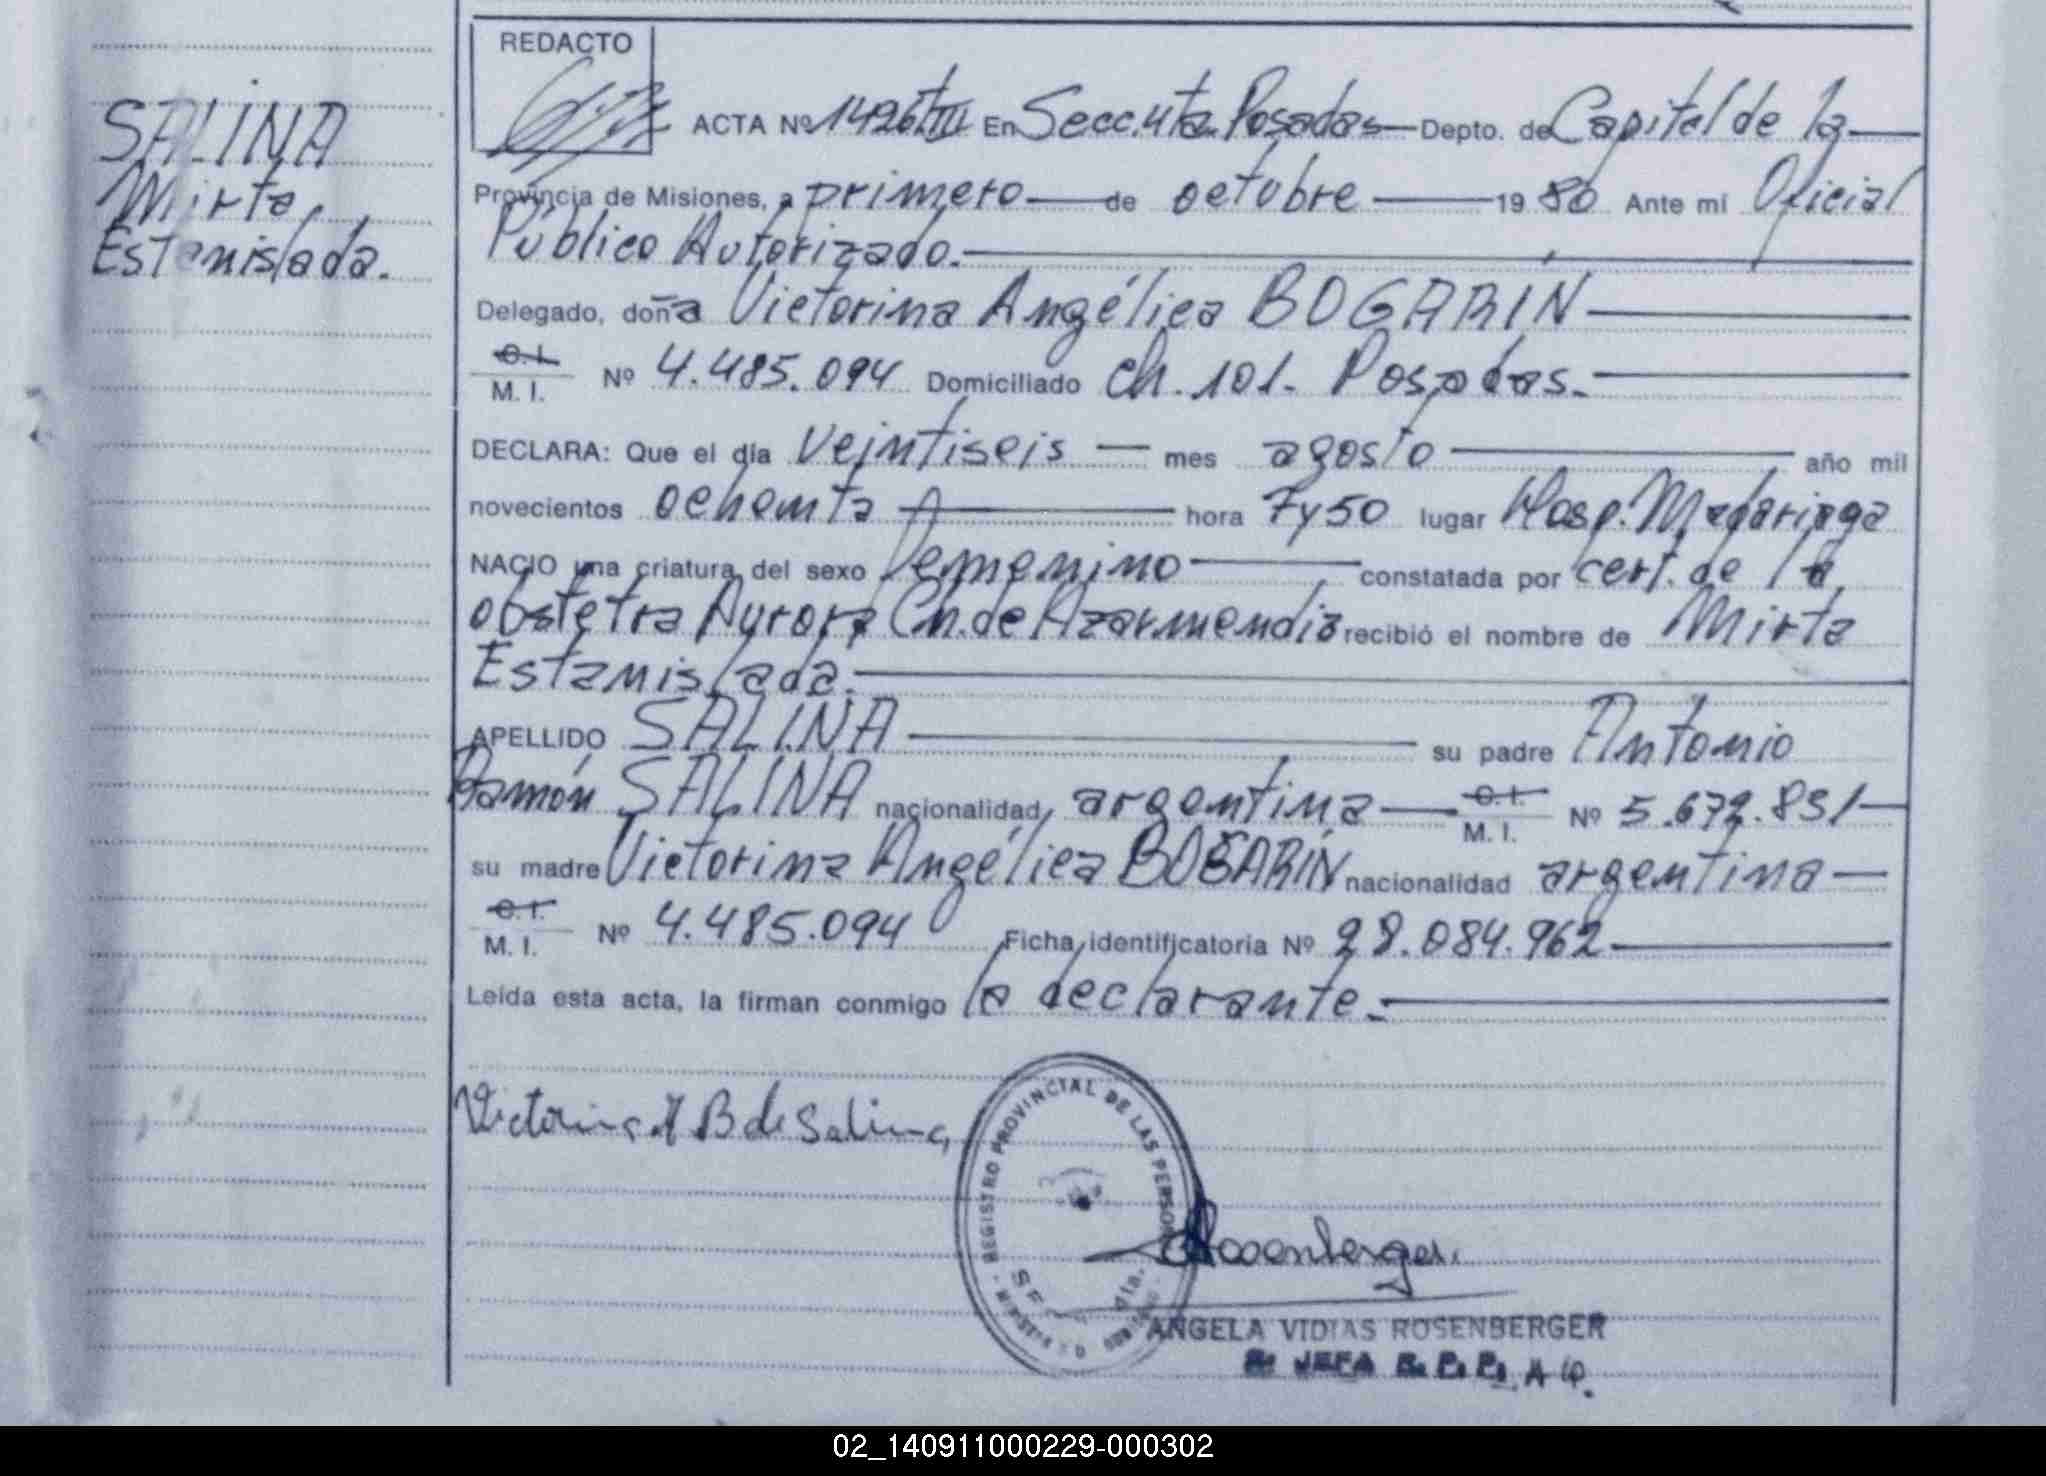 SALINA
Mirta
Estanislada.
REDACTO
ACTA Nº 1426 T III En Secc. 4ta. Posadas Depto. de Capital de la
Provincia de Misiones, a primero de octubre 1980 Ante mi Oficial
Público Autorizado.
Delegado, doña Victorina Angélica BOGARIN
C. I.
M. I. Nº 4.485.094 Domiciliado Ch. 101. Posadas.
DECLARA: Que el día veintiseis mes agosto año mil
novecientos ochenta hora 7y50 lugar Hosp. Madariaga
NACIO una criatura del sexo femenino constatada por cert. de la
obstetra Aurora Ch. de Azarmendia recibió el nombre de Mirta
Estanislada.
APELLIDO SALINA su padre Antonio
Ramón SALINA nacionalidad argentina C. I.
M. I. Nº 5.672.851
su madre Victorina Angélica BOGARIN nacionalidad argentina
C. I.
M. I. Nº 4.485.094 Ficha identificatoria Nº 28.084.962
Leída esta acta, la firman conmigo la declarante.
Victorina A B de Salina
REGISTRO PROVINCIAL DE LAS PERSONAS
Rosenberger
ANGELA VIDIAS ROSENBERGER
JEFA
02_140911000229-000302